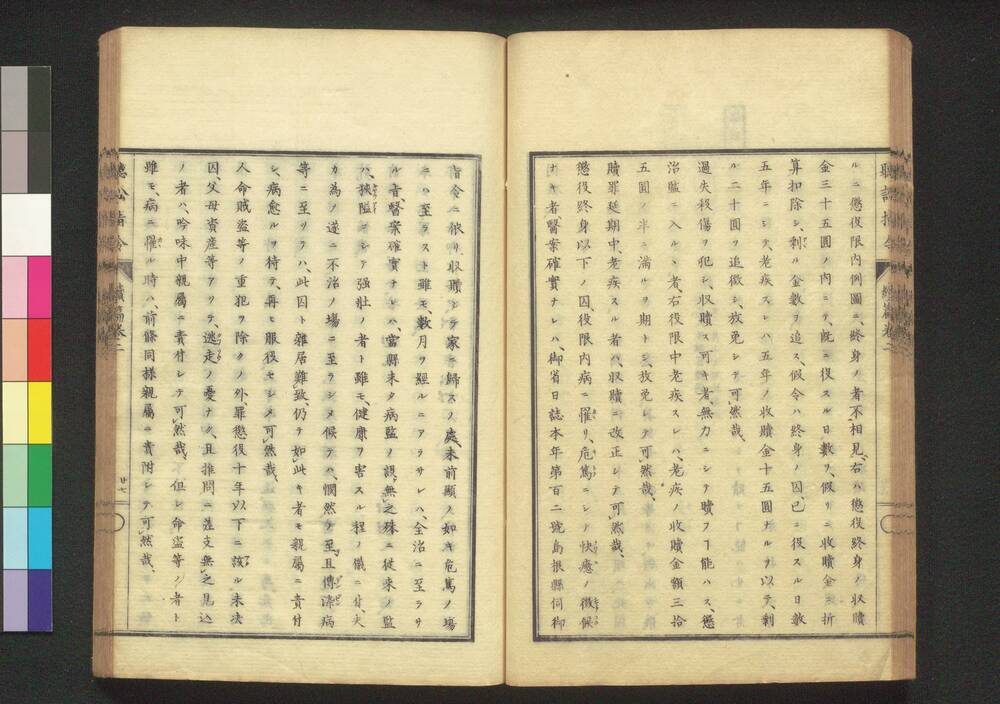 ルニ懲役限内例圖ニ、終身ノ者不相見、右ハ懲役終身ノ収贖
金三十五圓ノ内ニテ、既ニ役スル日數ヲ、假リニ収贖金ニ折
算扣除シ、剰ル金數ヲ追ス、假令ハ終身ノ囚、已ニ役スル日數
五年ニシテ、老疾スレハ五年ノ収贖金十五圓ナルヲ以テ、剰
ル二十圓ヲ追徴シ、放免シテ可然哉、
過失殺傷ヲ犯シ、収贖ス可キ者、無力ニシテ贖フヿ能ハス、懲
治監ニ入ルヽ者、右役限中老疾スレハ、老疾ノ収贖金額三拾
五圓ノ半ニ滿ルヲ期トシ、放免シテ可然哉、
贖罪延期中、老疾スル者ハ、収贖ニ改正シテ可然哉、
懲役終身以下ノ囚、役限内病ニ罹リ、危篤ニシテ快癒ノ徴候
ナキ者、醫案確實ナレハ、御省日誌本年第百二號島根縣伺御
指令ニ依リ、収贖シテ家ニ歸スノ處、未前顯ノ如キ危篤ノ塲
ニハ至ラスト雖モ、數月ヲ經ルニアラサレハ、全治ニ至ラサ
ル旨、醫案確實ナレハ、當縣未タ病監ノ設無之、殊ニ従来ノ監
ハ、狹隘ニシテ強壯ノ者ト雖モ、健康ヲ害スル程ノ儀ニ付、夫
カ為ノ遂ニ不治ノ場ニ至ラシメ候テハ、憫然ノ至、且傳染病
等ニ至リテハ、他囚ト雜居難致、仍テ如此キ者モ親屬ニ責付
シ、病愈ルヲ待テ、再ヒ服役セシメ可然哉、
人命賊盗等ノ重犯ヲ除クノ外、罪懲役十年以下ニ該ル未决
囚、父母資産等アリテ、逃走ノ憂ナク、且推問ニ差支無之見込
ノ者ハ、吟味中親屬ニ責付シテ可然哉、但シ命盗等ノ者ト
雖モ、病ニ罹ル時ハ、前條同様親屬ニ責附シテ可然哉、
聴訟指令 續篇巻二
廿七